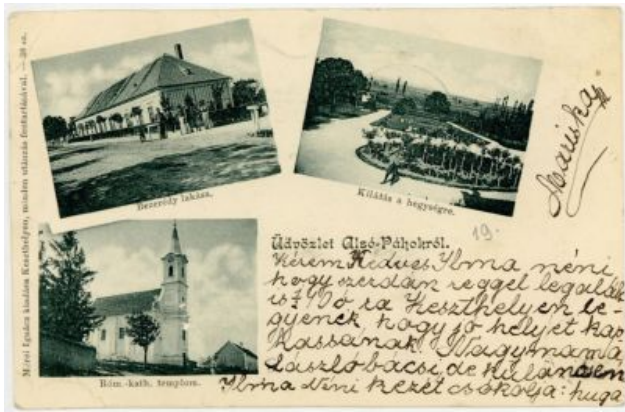 Mérei Ignácz kiadása Keszthelyen, minden utánzás fentartásával. — 38 sz.
Bezerédy lakása.
Kilátás a hegységre.
Mariska
19.
Üdvözlet Alsó-Páhokról.
Kérem Kedves Irma néni
hogy szerdán reggel legalább
is 7 10 ó ra Keszthelyen le-
gyenek, hogy jó helyet kap-
hassanak. Nagymama
László bácsi, de különösen
Irma néni kezét csókolja: huga
Róm.-kath. templom.